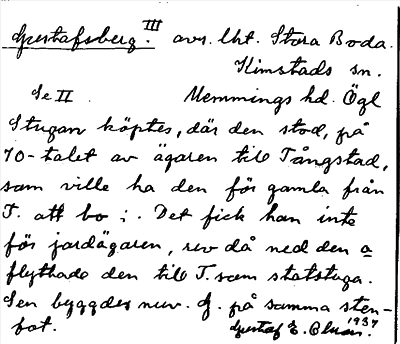 Gustafsberg. III avs. lht. Stora Boda.
Kimstads sn.
Se II. Memmings hd. Ögl
Stugan köptes, där den stod, på
70-talet av ägaren till Tångstad,
som ville ha den för gamla från
T. att bo i. Det fick han inte
för jordägaren, rev då ned den o
flyttade den till T. som statstuga.
Sen byggdes nuv. G. på samma sten-
fot. Gustaf E. 1937